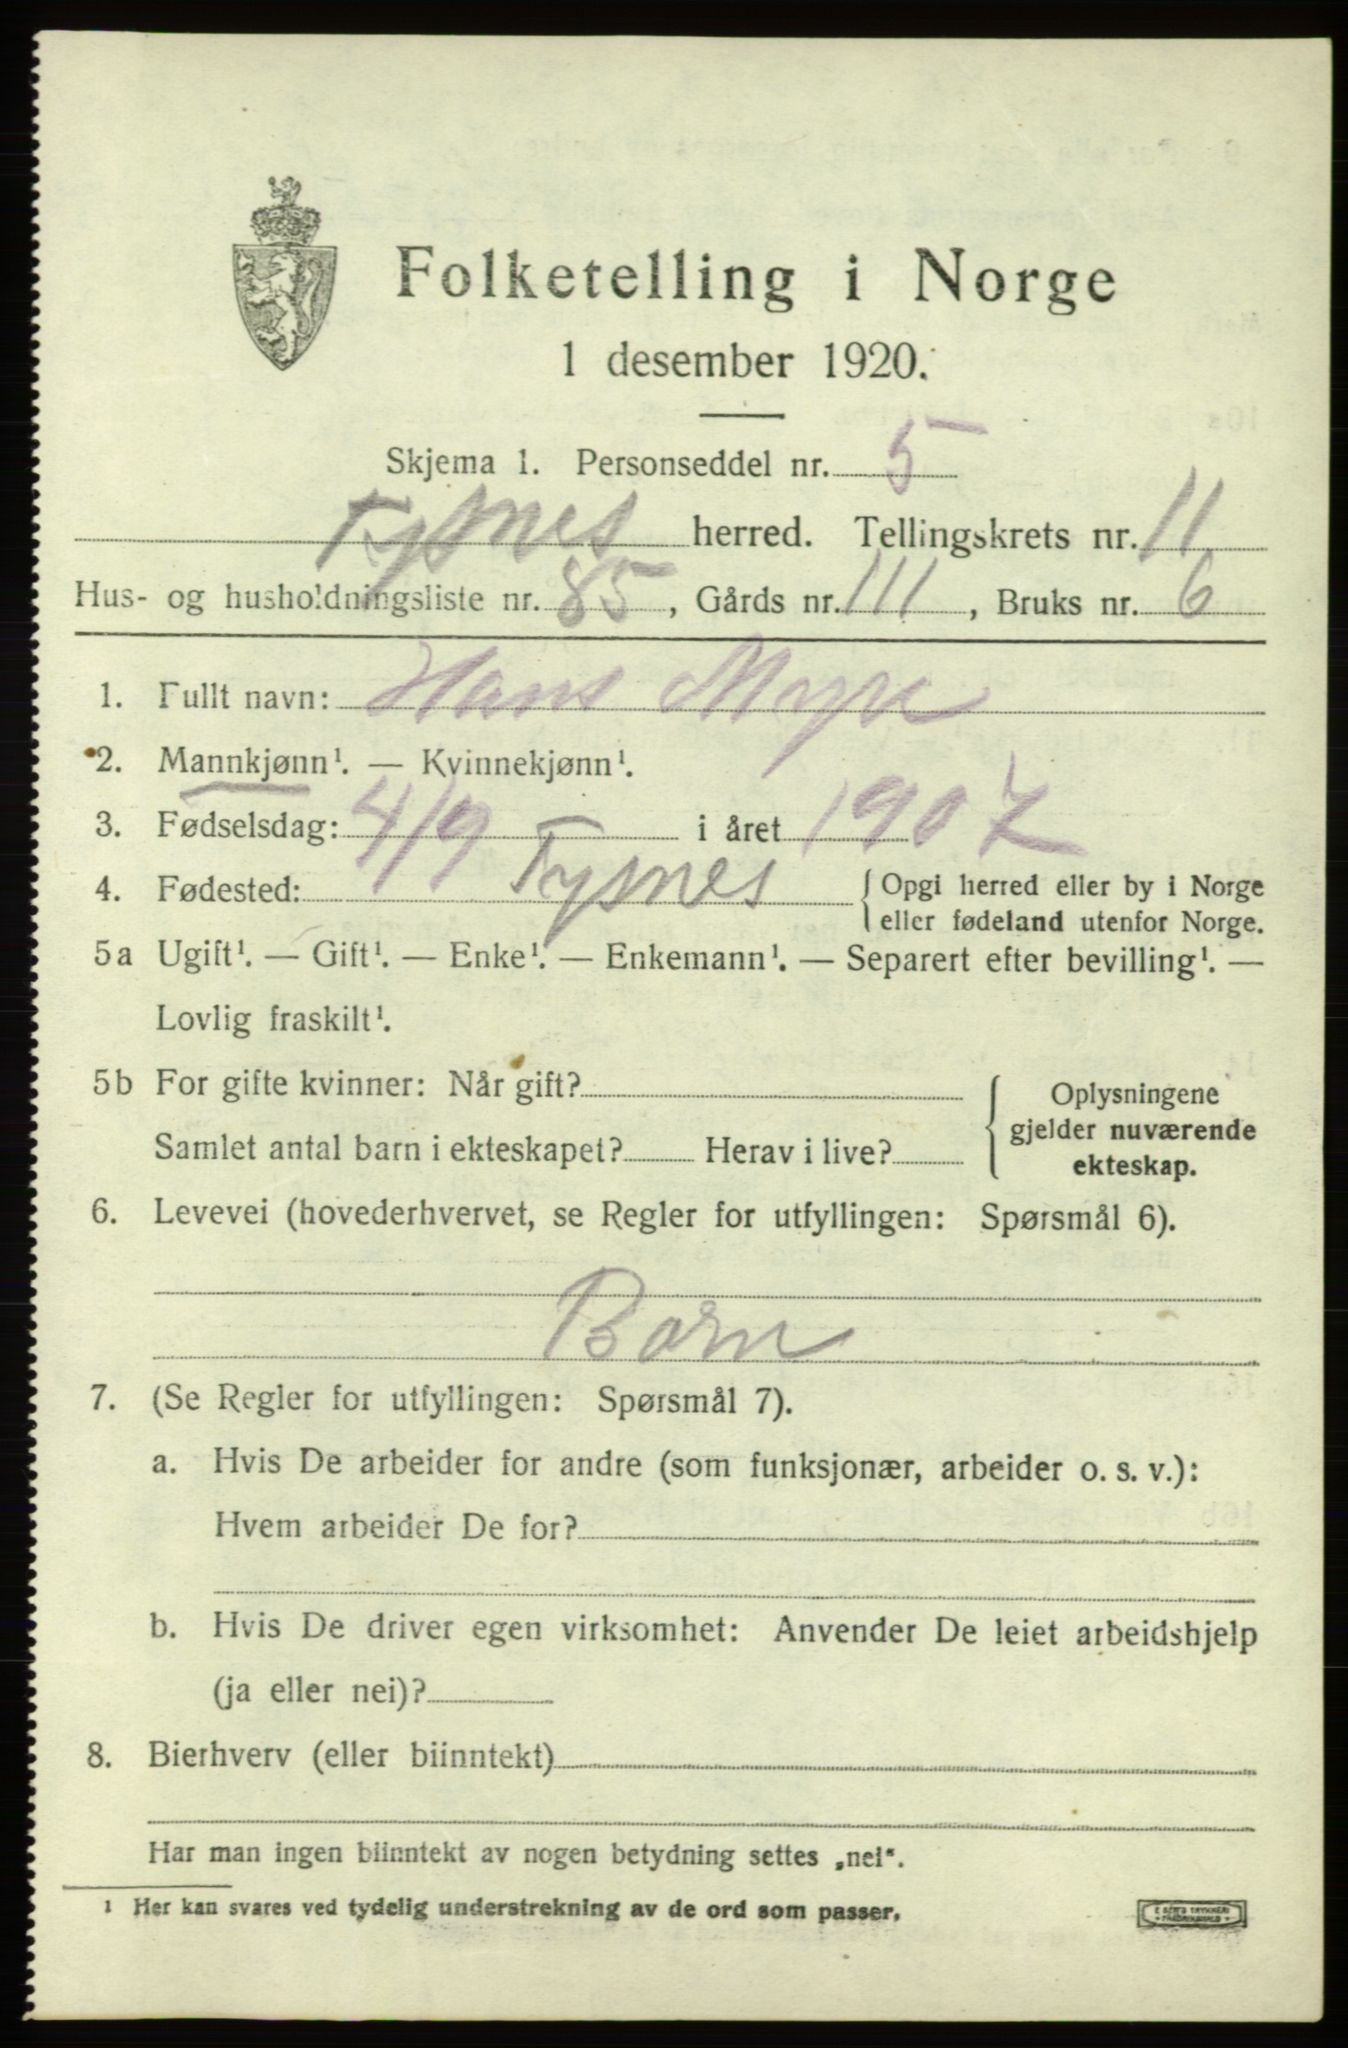 Folketelling i Norge
1 desember 1920.
Skjema 1. Personseddel nr. 5
Tysnes herred. Tellingskrets nr. 11
Hus- og husholdningsliste nr. 85, Gårds nr. 111, Bruks nr. 6
1. Fullt navn: Hans Myre
2. Mannkjønn¹. — Kvinnekjønn¹.
3. Fødselsdag: 4/9 i året 1907
4. Fødested: Tysnes {Opgi herred eller by i Norge
eller fødeland utenfor Norge.
5a Ugift¹. — Gift¹. — Enke¹. — Enkemann¹. — Separert efter bevilling¹. —
Lovlig fraskilt¹.
5b For gifte kvinner: Når gift?
Samlet antal barn i ekteskapet? Herav i live?
{ Oplysningene
gjelder nuværende
ekteskap.
6. Levevei (hovederhvervet, se Regler for utfyllingen: Spørsmål 6).
Barn
7. (Se Regler for utfyllingen: Spørsmål 7).
a. Hvis De arbeider for andre (som funksjonær, arbeider o. s. v.):
Hvem arbeider De for?
b. Hvis De driver egen virksomhet: Anvender De leiet arbeidshjelp
(ja eller nei)?
8. Bierhverv (eller biinntekt)
Har man ingen biinntekt av nogen betydning settes „nei“.
1 Her kan svares ved tydelig understrekning av de ord som passer.